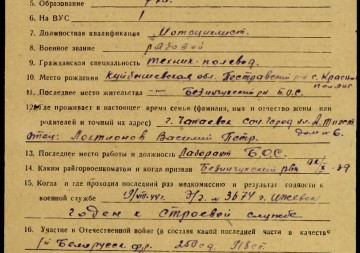 5. Образование 7 кл.
6. На ВУС 1
7. Должностная квалификация Мотоциклист.
8. Военное звание рядовой
9. Гражданская специальность техник-полевод.
10. Место рождения Куйбышевская обл. Пестравский р-н с. Красная Поляна
11. Последнее место жительства — Безенчукский р-н Б.О.С.
12. Где проживает в настоящее время семья (фамилия, имя и отчество жены или
родителей и точный их адрес) г. Чапаевск Соц. город ул. А. Толст. дом № 6.
отец: Локтионов Василий Петр.
13. Последнее место работы и должность Лаборант Б.О.С.
14. Каким райгорвоенкоматом и когда призван Безенчукский РВК
15. Когда и где проходил последний раз медкомиссию и результат годности к
военной службе 19/VIII-44 г. Э/г № 3674 г. Ижевск
годен к строевой службе
16. Участие в Отечественной войне (в составе какой последней части и в качестве
1й Белорусск. фр.